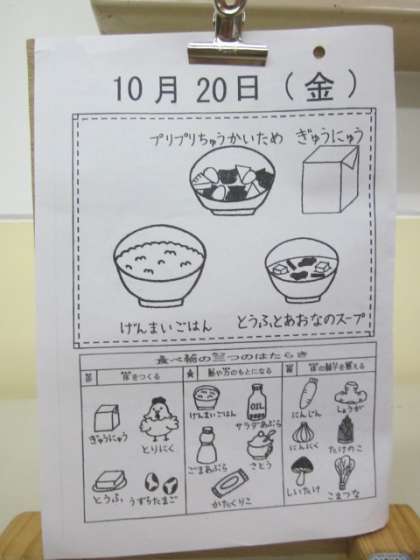 10月20日（金）
プリプリちゅうかいため　ぎゅうにゅう
げんまいごはん　とうふとあおなのスープ
食べ物の三つのはたらき
体をつくる
熱や力のもとになる
体の調子を整える
ぎゅうにゅう
とりにく
とうふ
うずらたまご
げんまいごはん
サラダあぶら
OIL
ごまあぶら
さとう
かたくりこ
にんじん
しょうが
にんにく
たけのこ
しいたけ
こまつな